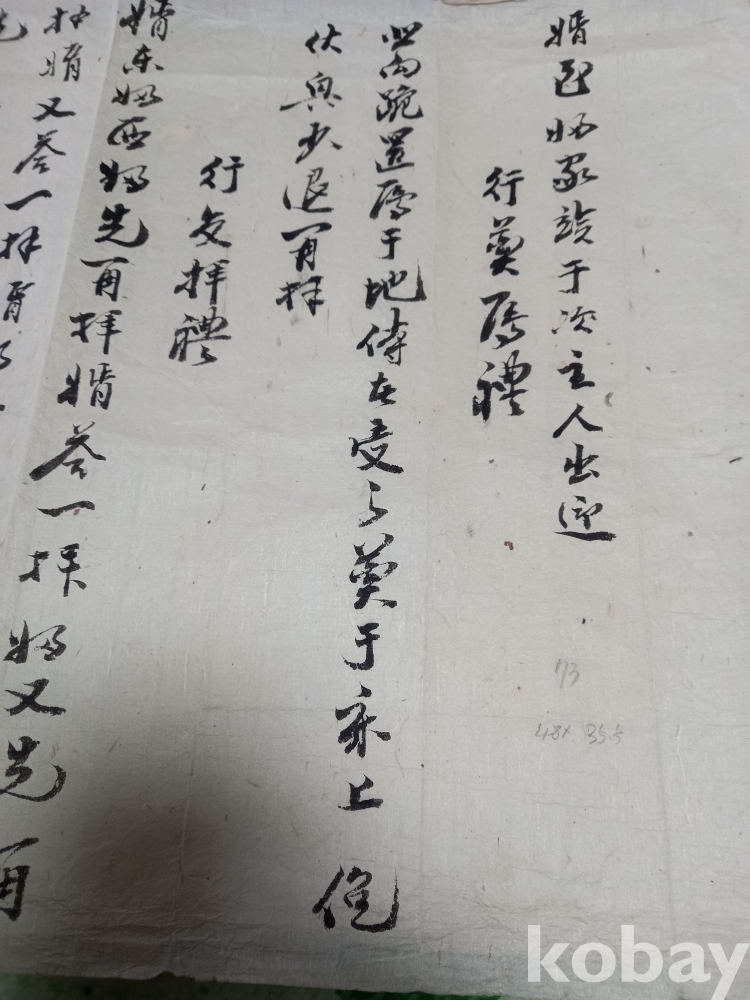 婿至婦家竢于次主人出迎
行奠鴈禮
北向跪置鴈于地侍者受之奠于床上 俛
伏興少退再拜
行交拜禮
婿東婦西婦先再拜婿答一拜婦又先再
拜婿又答一拜
73
48x 35.5
kobay